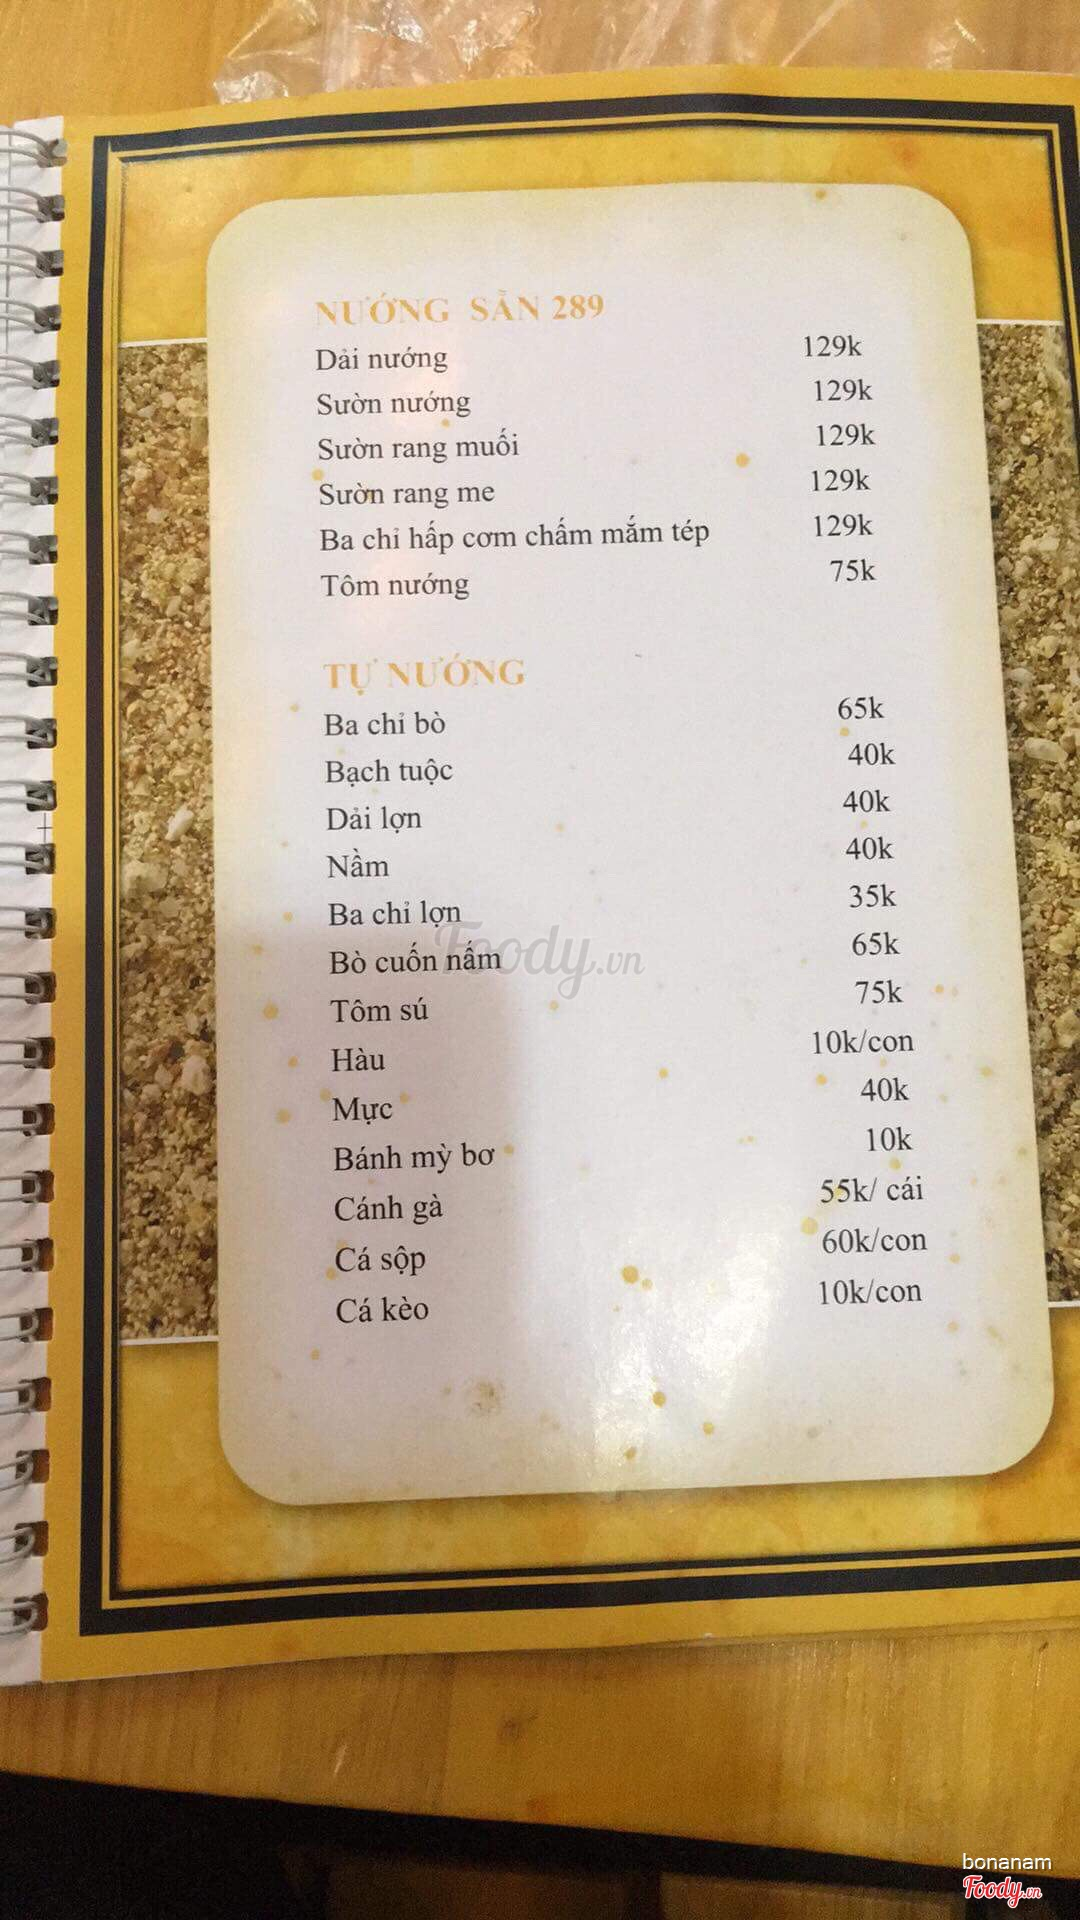 NƯỚNG SẴN 289
Dải nướng 129k
Sườn nướng 129k
Sườn rang muối 129k
Sườn rang me 129k
Ba chỉ hấp cơm chấm mắm tép 129k
Tôm nướng 75k
TỰ NƯỚNG
Ba chỉ bò 65k
Bạch tuộc 40k
Dải lợn 40k
Nầm 40k
Ba chỉ lợn 35k
Bò cuốn nấm 65k
Foody.vn
Tôm sú 75k
Hàu 10k/con
Mực 40k
Bánh mỳ bơ 10k
Cánh gà 55k/ cái
Cá sộp 60k/con
Cá kèo 10k/con
bonanam
Foody.vn